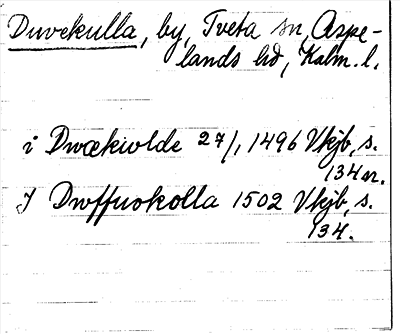 Duvekulla, by, Tveta sn, Aspe-
lands hd, Kalm. l.
i Dwækwlde 27/1 1496 Vkjb, s.
134 n.
J Dwffwokolla 1502 Vkjb, s.
134.